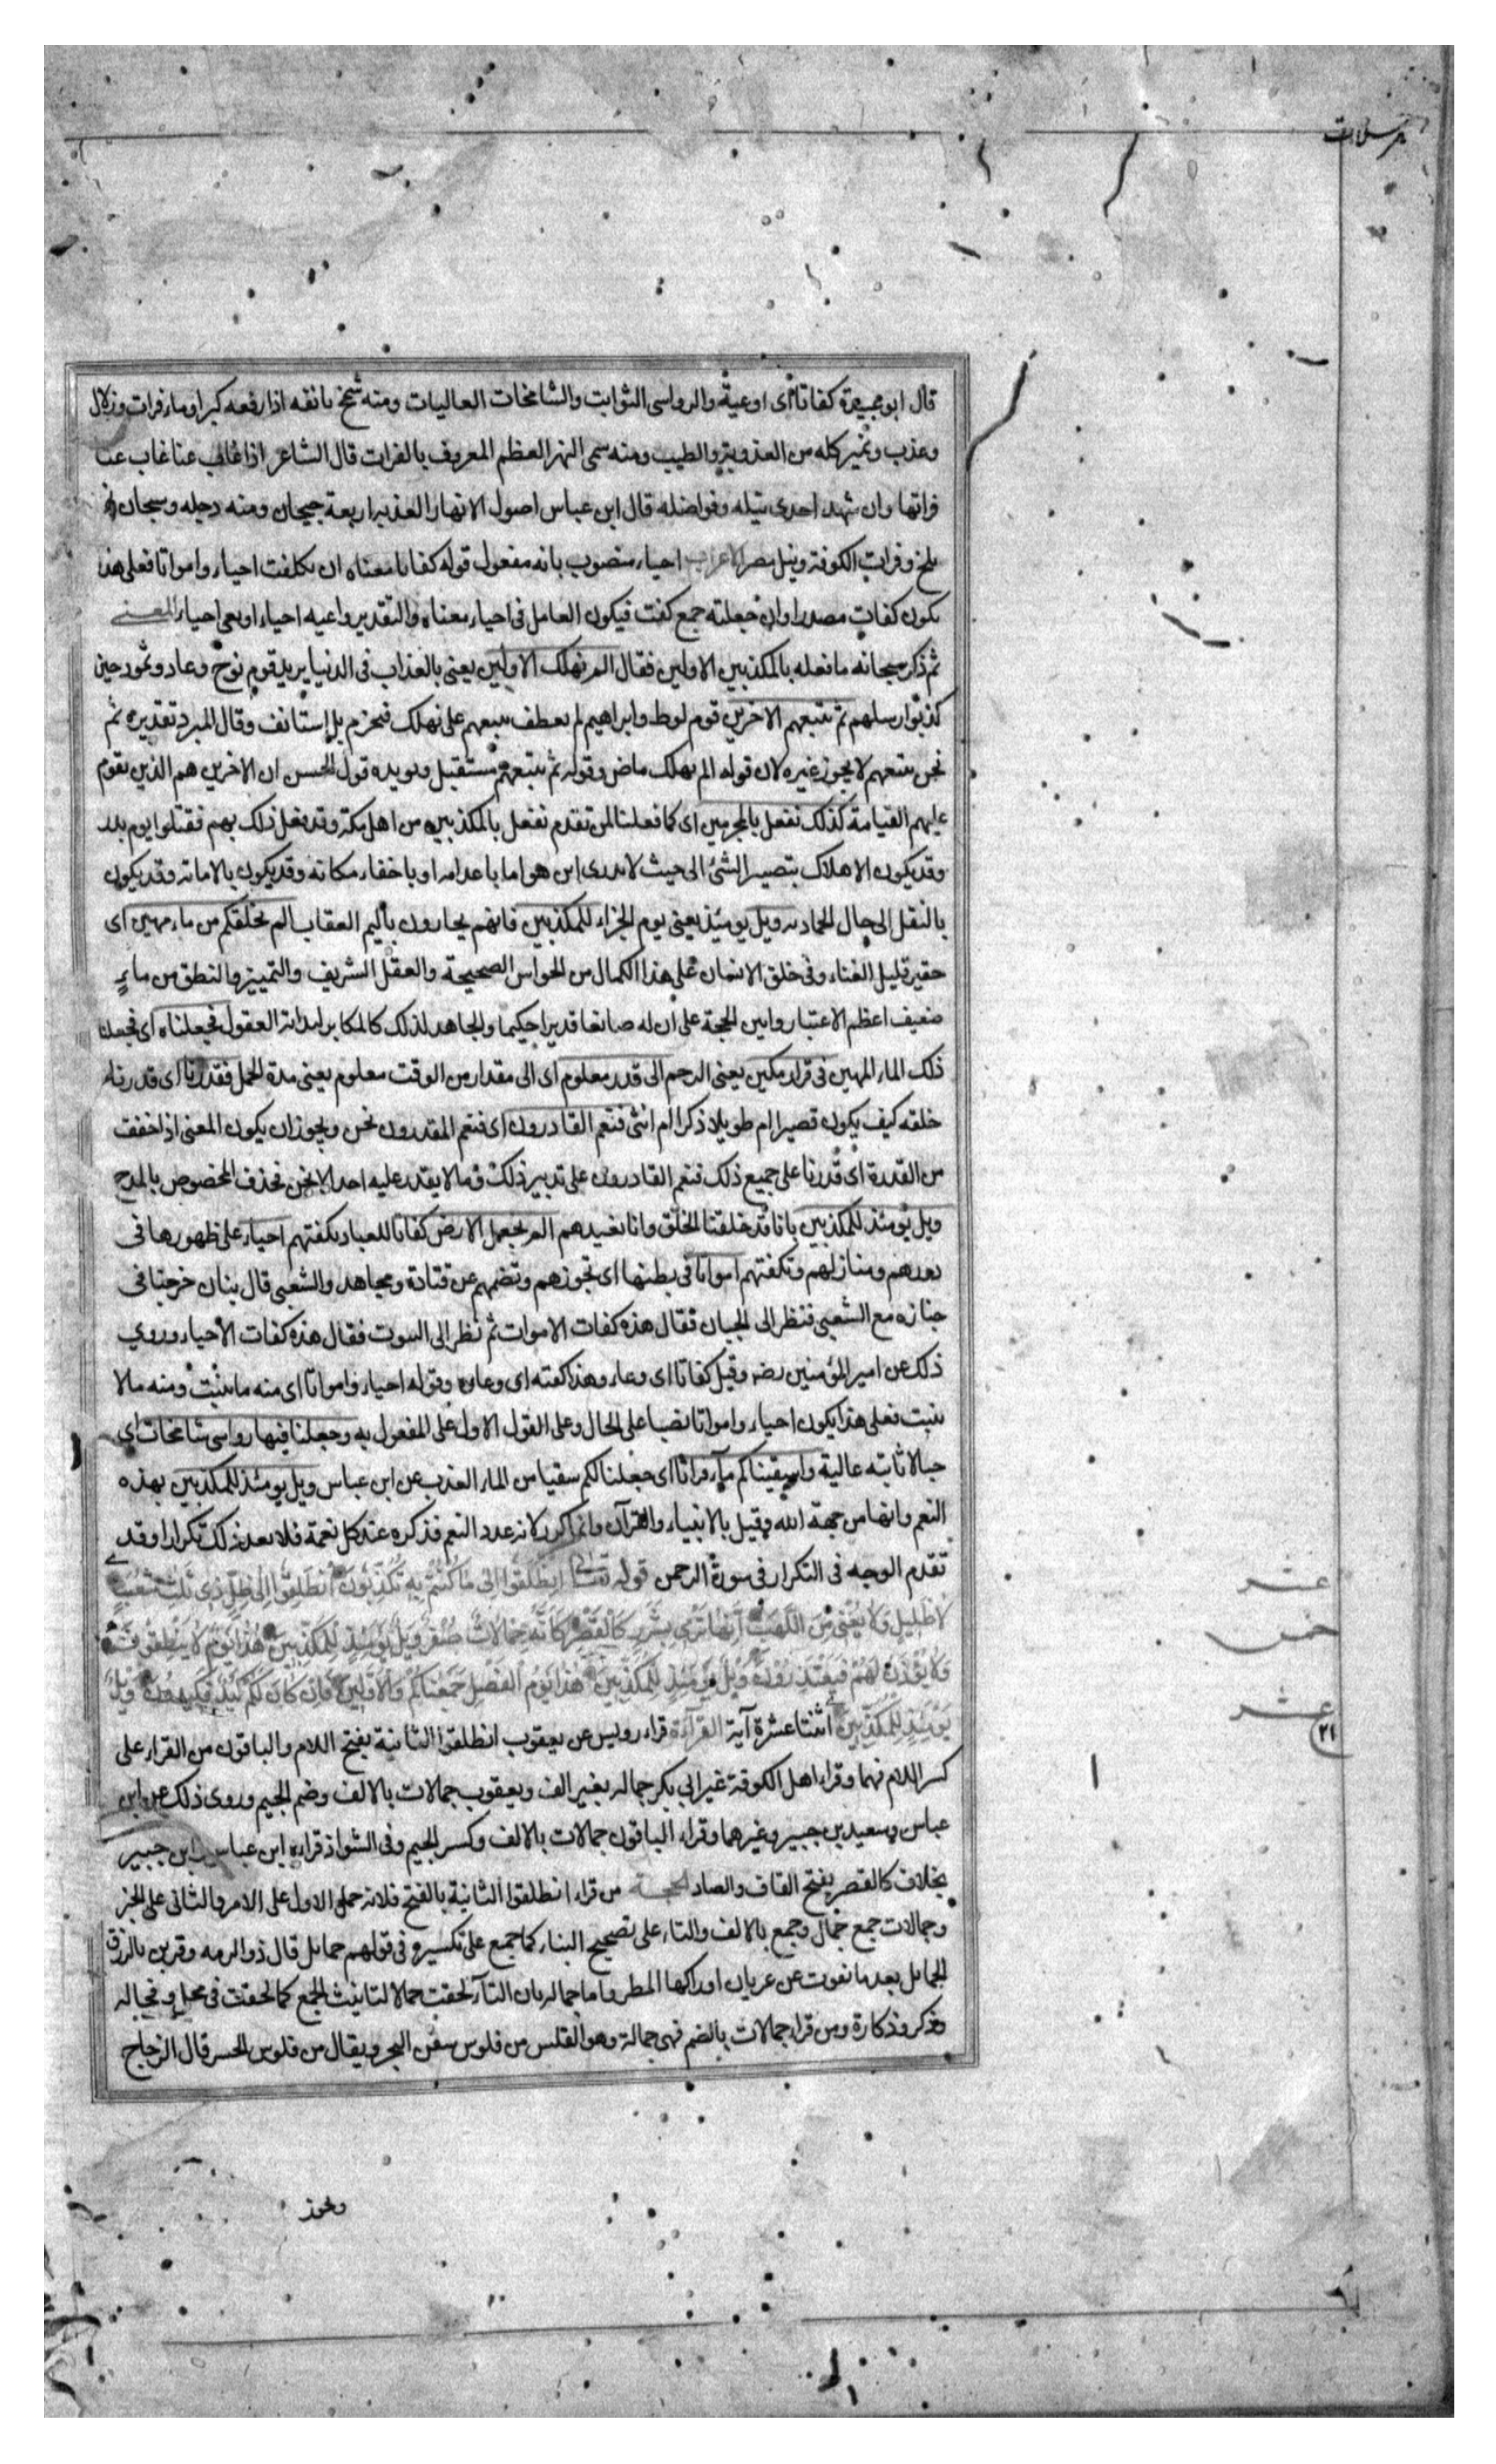 مرسلات
قال ابو عبيدة كفاتا اى اوعية والرواسى الثوابت والشامخات العاليات ومنه شمخ بانفه اذا رفعه كبرا وماء فرات وزلال
وعذب ونمير كله من العذوبة والطيب ومنه سمى النهر العظم المعروف بالفرات قال الشاعر اذا غاب عنا غاب عنا
فراتها وان شهد اجدى نيله وفواضله قال ابن عباس اصول الانهار العذبه اربعة جيحان ومنه دجله وسيحان نهر
بلخ وفرات الكوفة ونيل مصر الاعراب احياء منصوب بانه مفعول قوله كفاتا معناه ان نكلفت احياء وامواتا فعلى هذا
يكون كفات مصدرا وان جعلته جمع كفت فيكون العامل فى احياء معناه والتقدير واعيه احياء او يعى احياء المعنى
ثم ذكر سبحانه ما فعله بالمكذبين الاولين فقال الم نهلك الاولين يعنى بالعذاب فى الدنيا يريد قوم نوح وعاد وثمود حين
كذبوا رسلهم ثم نتبعهم الاخرين قوم لوط وابراهيم لم يعطف نتبعهم على نهلك فيجزم بل استانف وقال المبرد تقديره ثم
نحن نتبعهم لا يجوز غيره لان قوله الم نهلك ماض وقوله ثم نتبعهم مستقبل ويويده قول الحسن ان الاخرين هم الذين يقوم
عليهم القيامة كذلك نفعل بالمجرمين اى كما فعلنا لمن تقدم نفعل بالمكذبين من اهل مكة وقد فعل ذلك بهم فقتلوا يوم بدر
وقد يكون الاهلاك بتصيير الشئ الى حيث لا يدرى اين هو اما باعدامه او باخفاء مكانه وقد يكون بالاماته وقد يكون
بالنقل الى حال الجماديه ويل يومئذ يعنى يوم الجزاء للمكذبين فانهم يجازون باليم العقاب الم نخلقكم من ماء مهين اى
حقير قليل الغناء وفى خلق الانسان على هذا الكمال من الحواس الصحيحة والعقل الشريف والتمييز والنطق من ماء
ضعيف اعظم الاعتبار وابين الحجة على ان له صانعا قديرا حكيما والجاهد لذلك كالمكابر لبدائة العقول فجعلناه اى فجعلنا
ذلك الماء المهين فى قرار مكين يعنى الرحم الى قدر معلوم اى الى مقدار من الوقت معلوم يعنى مدة الحمل فقدرنا اى قدرنا
خلقه كيف يكون قصيرا ام طويلا ذكرا ام انثى فنعم القادرون اى فنعم المقدرون نحن ويجوز ان يكون المعنى اذا خففت
من القدرة اى قدرنا على جميع ذلك فنعم القادرون على تدبير ذلك وما لا يقدر عليه احد الا نحن فحذف المخصوص بالمدح
ويل يومئذ للمكذبين بانا قد خلقنا الخلق وانا نعيدهم الم نجعل الارض كفاتا للعباد تكفتهم احياء على ظهورها فى
دورهم ومنازلهم وتكفتهم امواتا فى بطنها اى تحوزهم وتضمهم عن قتادة ومجاهد والشعبى قال بنان خرجنا فى
جنازه مع الشعبى فنظر الى الجبان فقال هذه كفات الاموات ثم نظر الى البيوت فقال هذه كفات الاحياء وروي
ذلك عن امير المؤمنين رضه وقيل كفاتا اى وعاء وهذا كفته اى وعاوه وقوله احياء وامواتا اى منه ما ينبت ومنه مالا
ينبت فعلى هذا يكون احياء وامواتا نصبا على الحال وعلى القول الاول على المفعول به وجعلنا فيها رواسى شامخات اى
جبالا ثابته عالية واسقيناكم ماء فراتا اى جعلنا لكم سقيا من الماء العذب عن ابن عباس ويل يومئذ للمكذبين بهذه
النعم وانها من جهة الله وقيل بالانبياء والقرآن وانما كرر لانه عدد النعم فذكره عند كل نعمة فلا يعد ذلك تكرارا وقد
تقدم الوجه فى التكرار فى سورة الرحمن قوله تعالى اِنطَلِقُوا اِلى مَا كُنتُم بِهِ تُكَذِّبُونَ اِنْطَلِقُوا اِلى ظِلٍّ ذِي ثَلٰثِ شُعَبٍ
لا ظَلِيلٍ وَلا يُغْنِي مِنَ اللَّهَبِ اِنَّهَا تَرْمِي بِشَرَرٍ كَالْقَصْرِ كَاَنَّهُ جِمَالاتٌ صُفْرٌ وَيْلٌ يَوْمَئِذٍ لِلْمُكَذِّبِينَ هٰذَا يَوْمُ لا يَنْطِقُونَ
وَلا يُؤْذَنُ لَهُمْ فَيَعْتَذِرُونَ وَيْلٌ يَوْمَئِذٍ لِلْمُكَذِّبِينَ هٰذَا يَوْمُ الْفَصْلِ جَمَعْنَاكُمْ وَالاَوَّلِينَ فَاِنْ كَانَ لَكُمْ كَيْدٌ فَكِيدُونِ وَيْلٌ
يَوْمَئِذٍ لِلْمُكَذِّبِينَ اثنتا عشرة آية القراءة قراء رويس عن يعقوب انطلقوا الثانية بفتح اللام والباقون من القراء على
كسر اللام فيهما وقراء اهل الكوفة غير ابي بكر جماله بغير الف ويعقوب جمالات بالالف وضم الجيم وروى ذلك عن ابن
عباس وسعيد بن جبير وغيرهما وقراء الباقون جمالات بالالف وكسر الجيم وفى الشواذ قراءه ابن عباس وابن جبير
بخلاف كالقصر بفتح القاف والصاد الحجة من قراء انطلقوا الثانية بالفتح فلانه حمل الاول على الامر والثانى على الخبر
وجمالات جمع جمال وجمع بالالف والتاء على تصحيح البناء كما جمع على تكسيره فى قولهم جمايل قال ذو الرمه وقربن بالزرق
الجمايل بعد ما تقوت عن غربان اوراكها المطر واما جماله بان التاء لحقت جمالا لتانيث الجمع كما لحقت فى فحل وفحاله
وذكر وذكارة ومن قراء جمالات بالضم فهى جمالة وهو القلس من قلوس سفن البحر ويقال من قلوس الجسر قال الزجاج
عشر
خمس
عشر
٢١
ويجوز